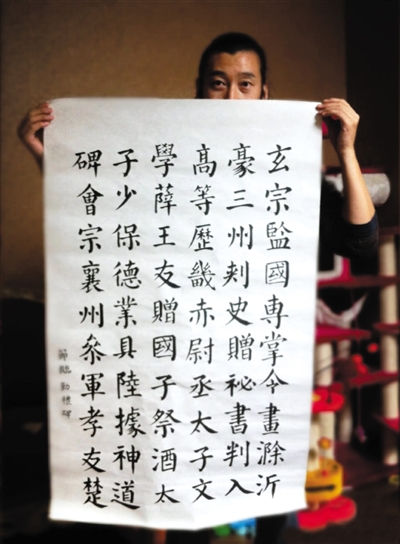 玄宗監國専掌令畫滁沂
豪三州刾史贈祕書判入
高等歷畿赤尉丞太子文
學薛王友贈國子祭酒太
子少保德業具陸據神道
碑會宗襄州參軍孝友楚
節臨勤禮碑